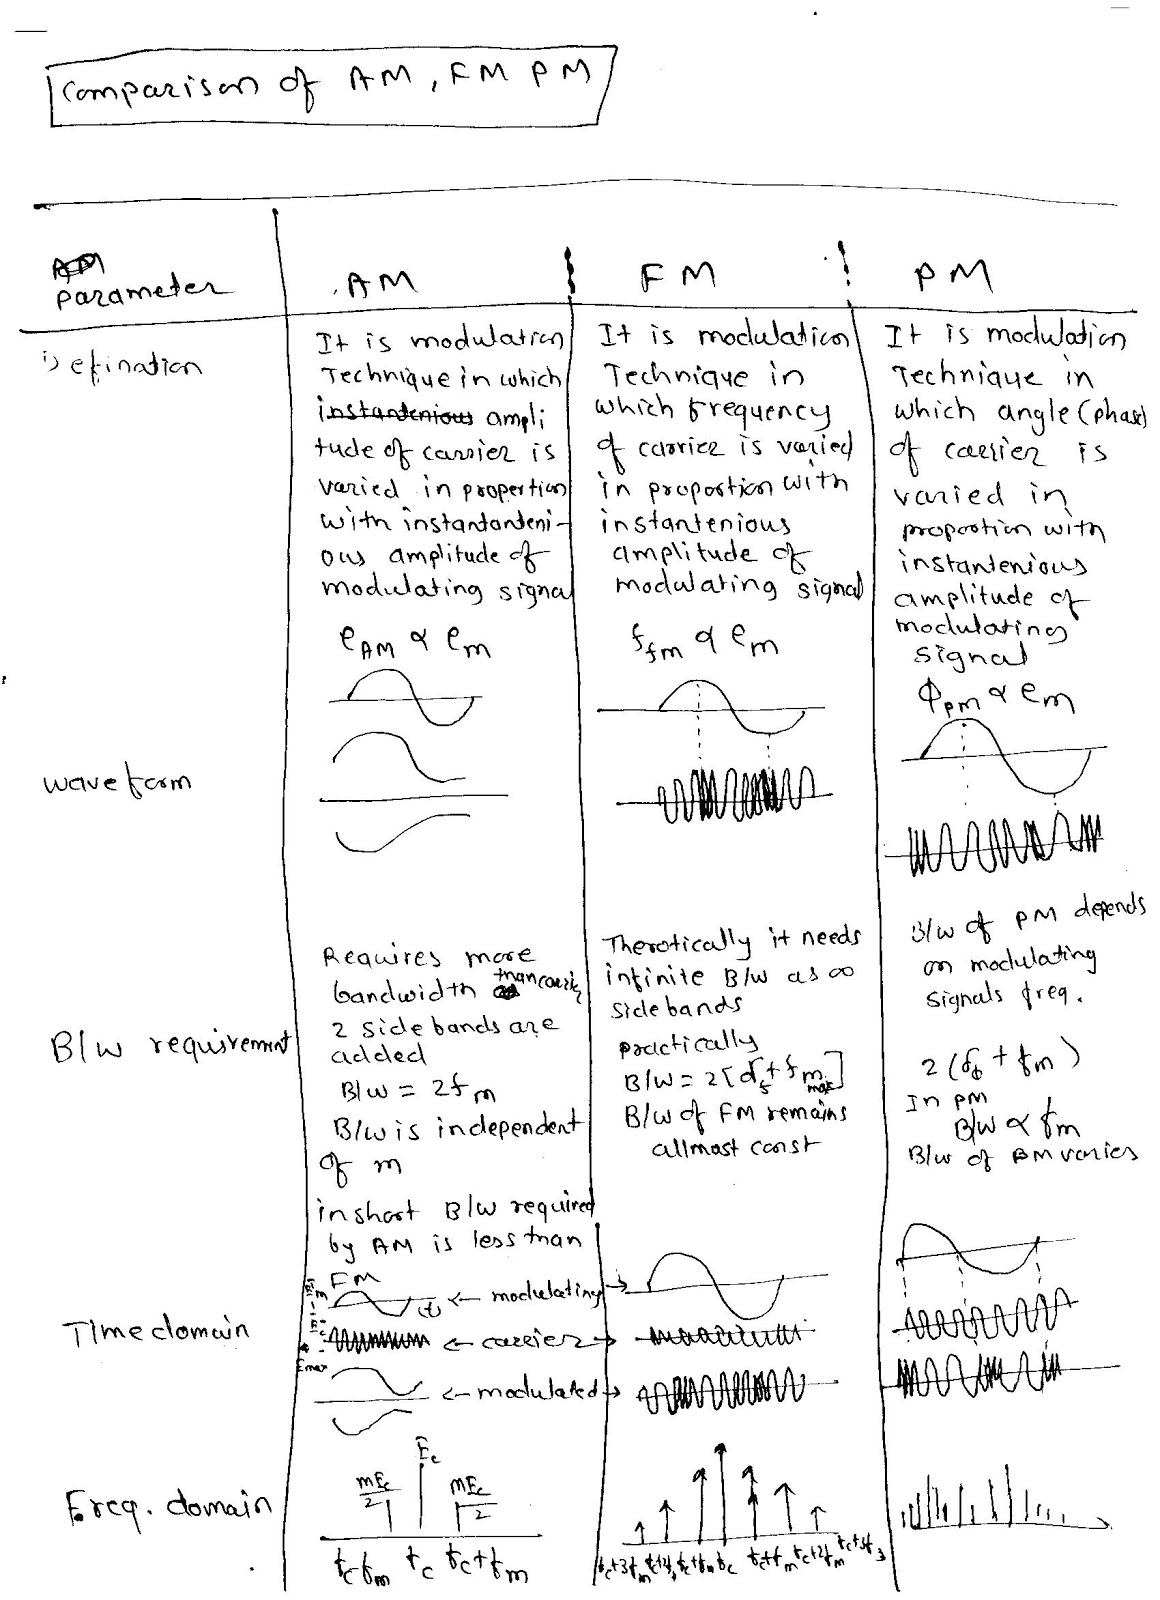 Comparison of AM, FM PM
Parameter
AM
FM
PM
Defination
It is modulation
Technique in which
instantenious ampli
tude of carrier is
varied in propertion
with instantanteni-
ous amplitude of
modulating signal
eAM ∝ em
It is modulation
Technique in
which frequency
of carrier is varied
in proportion with
instantenious
amplitude of
modulating signal
ffm ∝ em
It is modulation
Technique in
which angle (phase)
of carrier is
varied in
proportion with
instantenious
amplitude of
modulating
signal
ϕpm ∝ em
waveform
B/w requirement
Requires more
bandwidth than carrier
2 sidebands are
added
B/w = 2fm
B/w is independent
of m
inshort B/w required
by AM is less than
FM
Therotically it needs
infinite B/w as ∞
sidebands
practically
B/w = 2[δf + fm max]
B/w of FM remains
allmost const
B/w of PM depends
on modulating
signals freq.
2(δf + fm)
In PM
B/w ∝ fm
B/w of PM varies
Time domain
Em
(t)
← modulating →
Ec
← carrier →
Emax
← modulated →
Freq. domain
Ec
mEc/2
mEc/2
fc-fm
fc
fc+fm
fc+3fm
fc+fm
fc
fc+fm
fc+2fm
fc+3f3